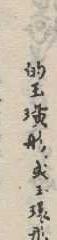 的玉璜形，或玉環形